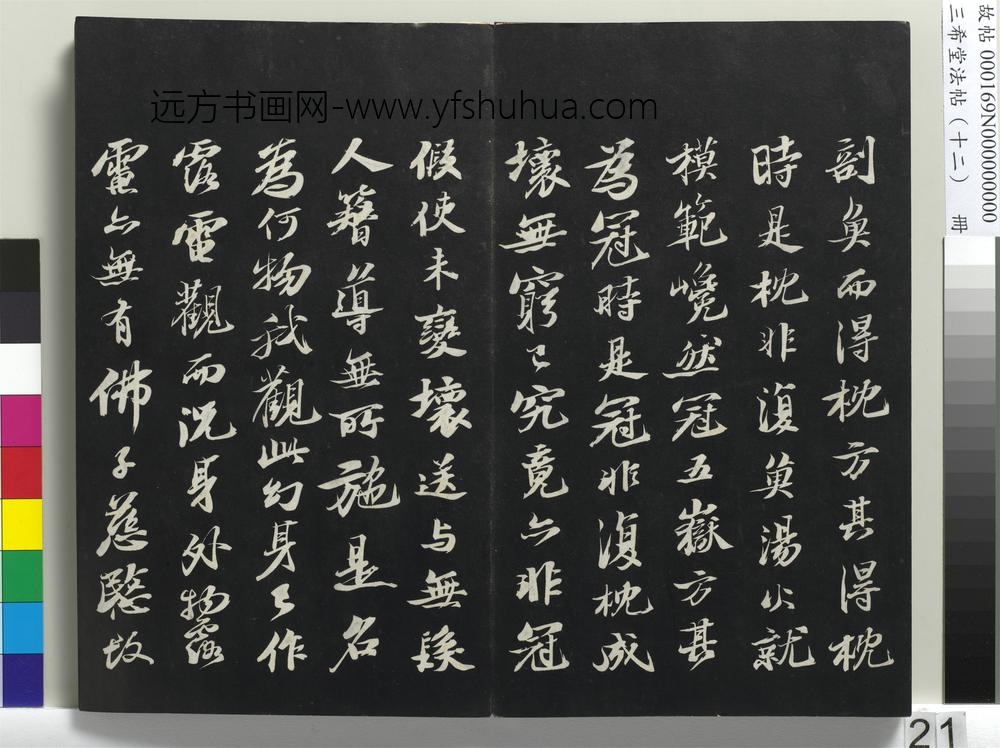 故帖 000169N00000000000
三希堂法帖（十二） 冊
远方书画网-www.yfshuhua.com
剖魚而得枕方其得枕
時是枕非復魚湯火就
模範巉然冠五嶽方其
為冠時是冠非復枕成
壞無窮已究竟亦非冠
假使未變壞送与無髮
人簪導無所施是名
為何物我觀此幻身已作
露電觀而況身外物露
電亦無有佛子慈愍故
21